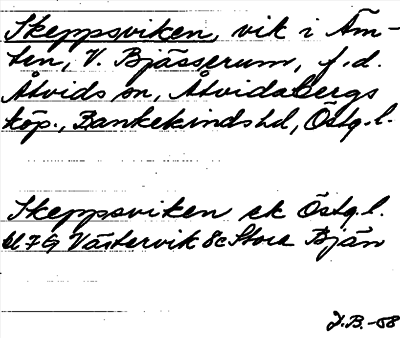 Skeppsviken, vik i Äm-
ten, V. Bjässerum, f.d.
Åtvids sn, Åtvidabergs
köp., Bankekinds hd, Östg.l.
Skeppsviken ek Östg.l.
7G Västervik 8c Stora Bjän
J.B.-58